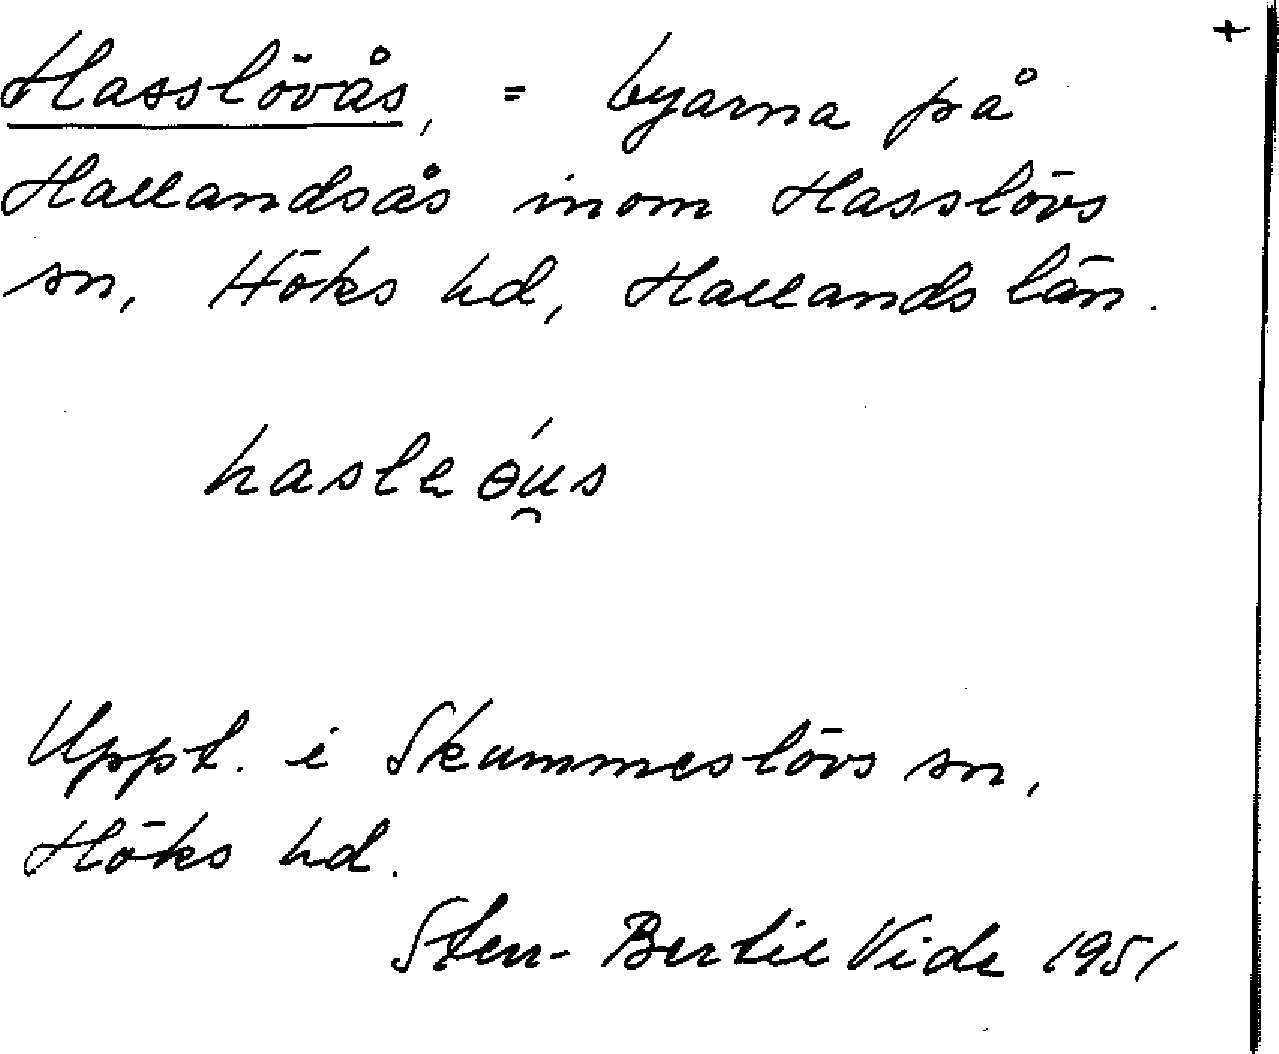 +
Hasslövås, = byarna på
Hallandsås inom Hasslövs
sn, Höks hd, Hallands län.
hasle
Uppt. i Skummeslövs sn,
Höks hd.
Sten-Bertil Vide 1951